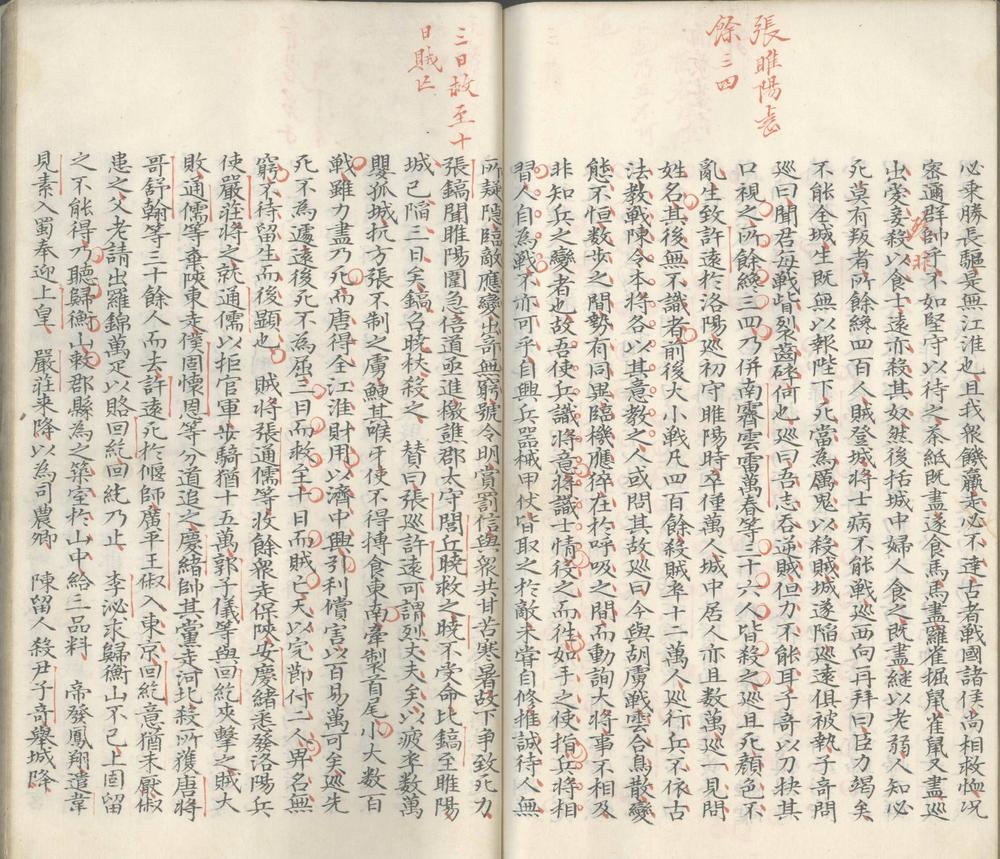 張睢陽齿
餘三四
必乘勝長驅是無江淮也且我衆饑羸走必不達古者戰國諸侯尚相救恤况
密邇群帥乎不如堅守以待之茶紙既盡遂食馬馬盡羅雀掘鼠雀鼠又盡巡
出愛妾殺以食士遠亦殺其奴然後括城中婦人食之既盡繼以老弱人知必
死莫有叛者所餘終四百人賊登城將士病不能戰巡西向再拜曰臣力竭矣
不能全城生既無以報陛下死當為厲鬼以殺賊城遂陷巡遠俱被執子奇問
巡曰聞君每戰眥烈齒碎何也巡曰吾志吞逆賊但力不能耳子奇以刀抉其
口視之所餘終三四乃併南霽雲雷萬春等三十六人皆殺之巡且死顏色不
亂生致許遠於洛陽巡初守睢陽時卒僅萬人城中居人亦且數萬巡一見問
姓名其後無不識者前後大小戰凡四百餘殺賊卒十二萬人巡行兵不依古
法教戰陳令本將各以其意教之人或問其故巡曰今與胡虜戰雲合鳥散變
態不恒數步之間勢有同異臨機應猝在於呼吸之間而動詢大將事不相及
非知兵之變者也故吾使兵識將意將識士情役之而往如手之使指兵將相
習人自為戰不亦可乎自興兵器械甲仗皆取之於敵未嘗自修推誠待人無
三日救至十
日賊亡
所疑隱臨敵應變出奇無窮號令明賞罰信與衆共甘苦寒暑故下爭致死力
張鎬聞睢陽圍急倍道亟進檄譙郡太守閭丘曉救之曉不受命比鎬至睢陽
城已陷三日矣鎬召曉杖殺之 贊曰張巡許遠可謂烈丈夫矣以疲卒數萬
嬰孤城抗方張不制之虜鯁其喉牙使不得搏食東南牽製首尾小大數百
戰雖力盡乃死而唐得全江淮財用以濟中興引利償害以百易萬可矣巡先
死不為遽遠後死不為屈三日而救至十日而賊亡天以完節付二人畀名無
窮不待留生而後顯也 賊將張通儒等收餘衆走保陝安慶緒悉發洛陽兵
使嚴莊將之就通儒以拒官軍步騎猶十五萬郭子儀等與回紇夾擊之賊大
敗通儒等棄陝東走僕固懷恩等分道追之慶緒帥其黨走河北殺所獲唐將
哥舒翰等三十餘人而去許遠死於偃師廣平王俶入東京回紇意猶未厭俶
患之父老請出羅錦萬疋以賂回紇回紇乃止 李泌求歸衡山不已上固留
之不能得乃聽歸衡山敕郡縣為之築室於山中給三品料 帝發鳳翔遣韋
見素入蜀奉迎上皇 嚴莊来降以為司農卿 陳留人殺尹子奇舉城降